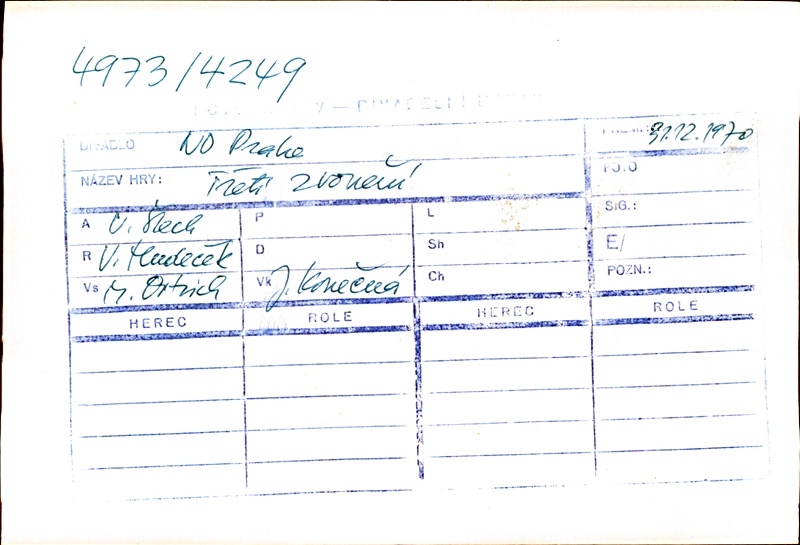 4973/4249
DIVADLO ND Praha
31.12.1970
NÁZEV HRY: Třetí zvonění
FO.Č
A V. Štech P L SIG.:
R V. Hudeček D Sh E/
Vs M. Ostrich Vk J. Konečná Ch POZN.:
HEREC ROLE HEREC ROLE